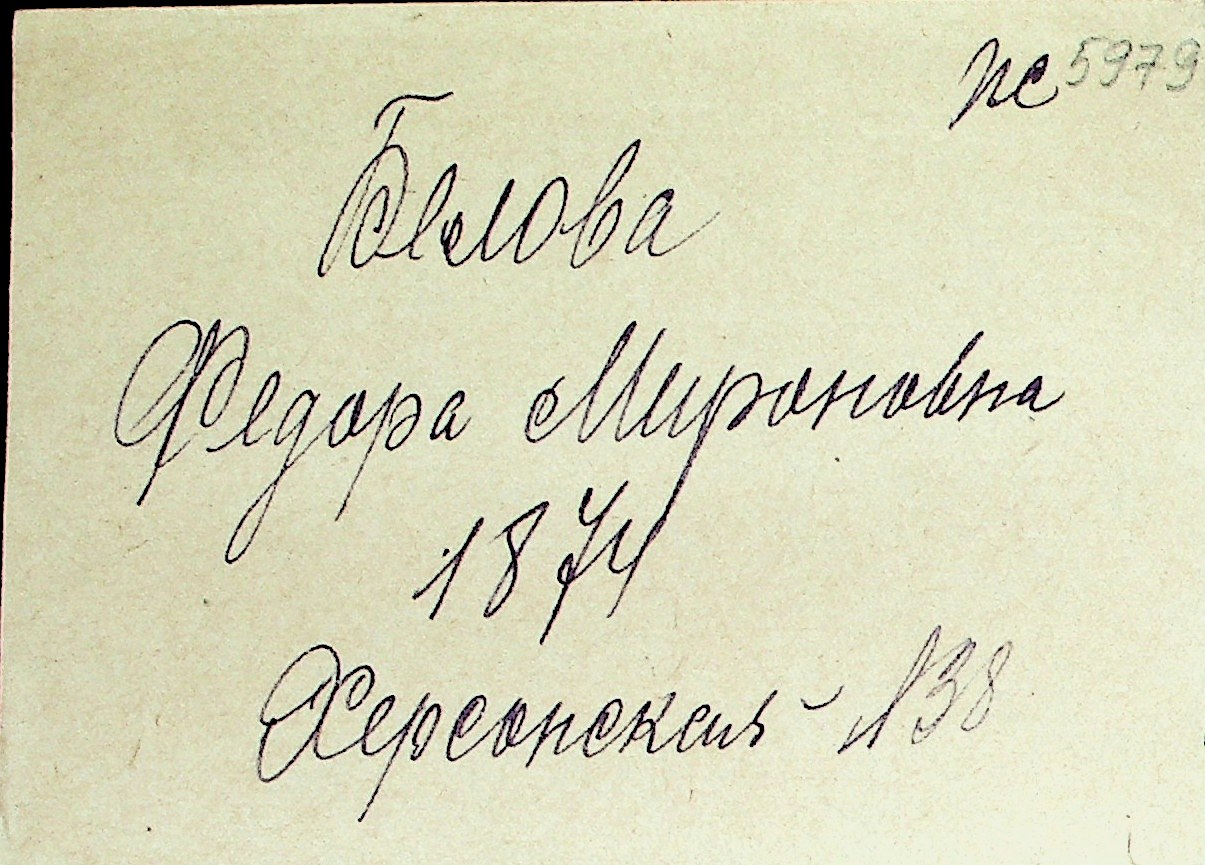 пс 5979
Белова
Федора Мироновна
1874
Херсонская - 138